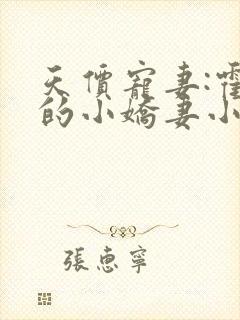 天價寵妻:霍
的小嬌妻小
張惠寧